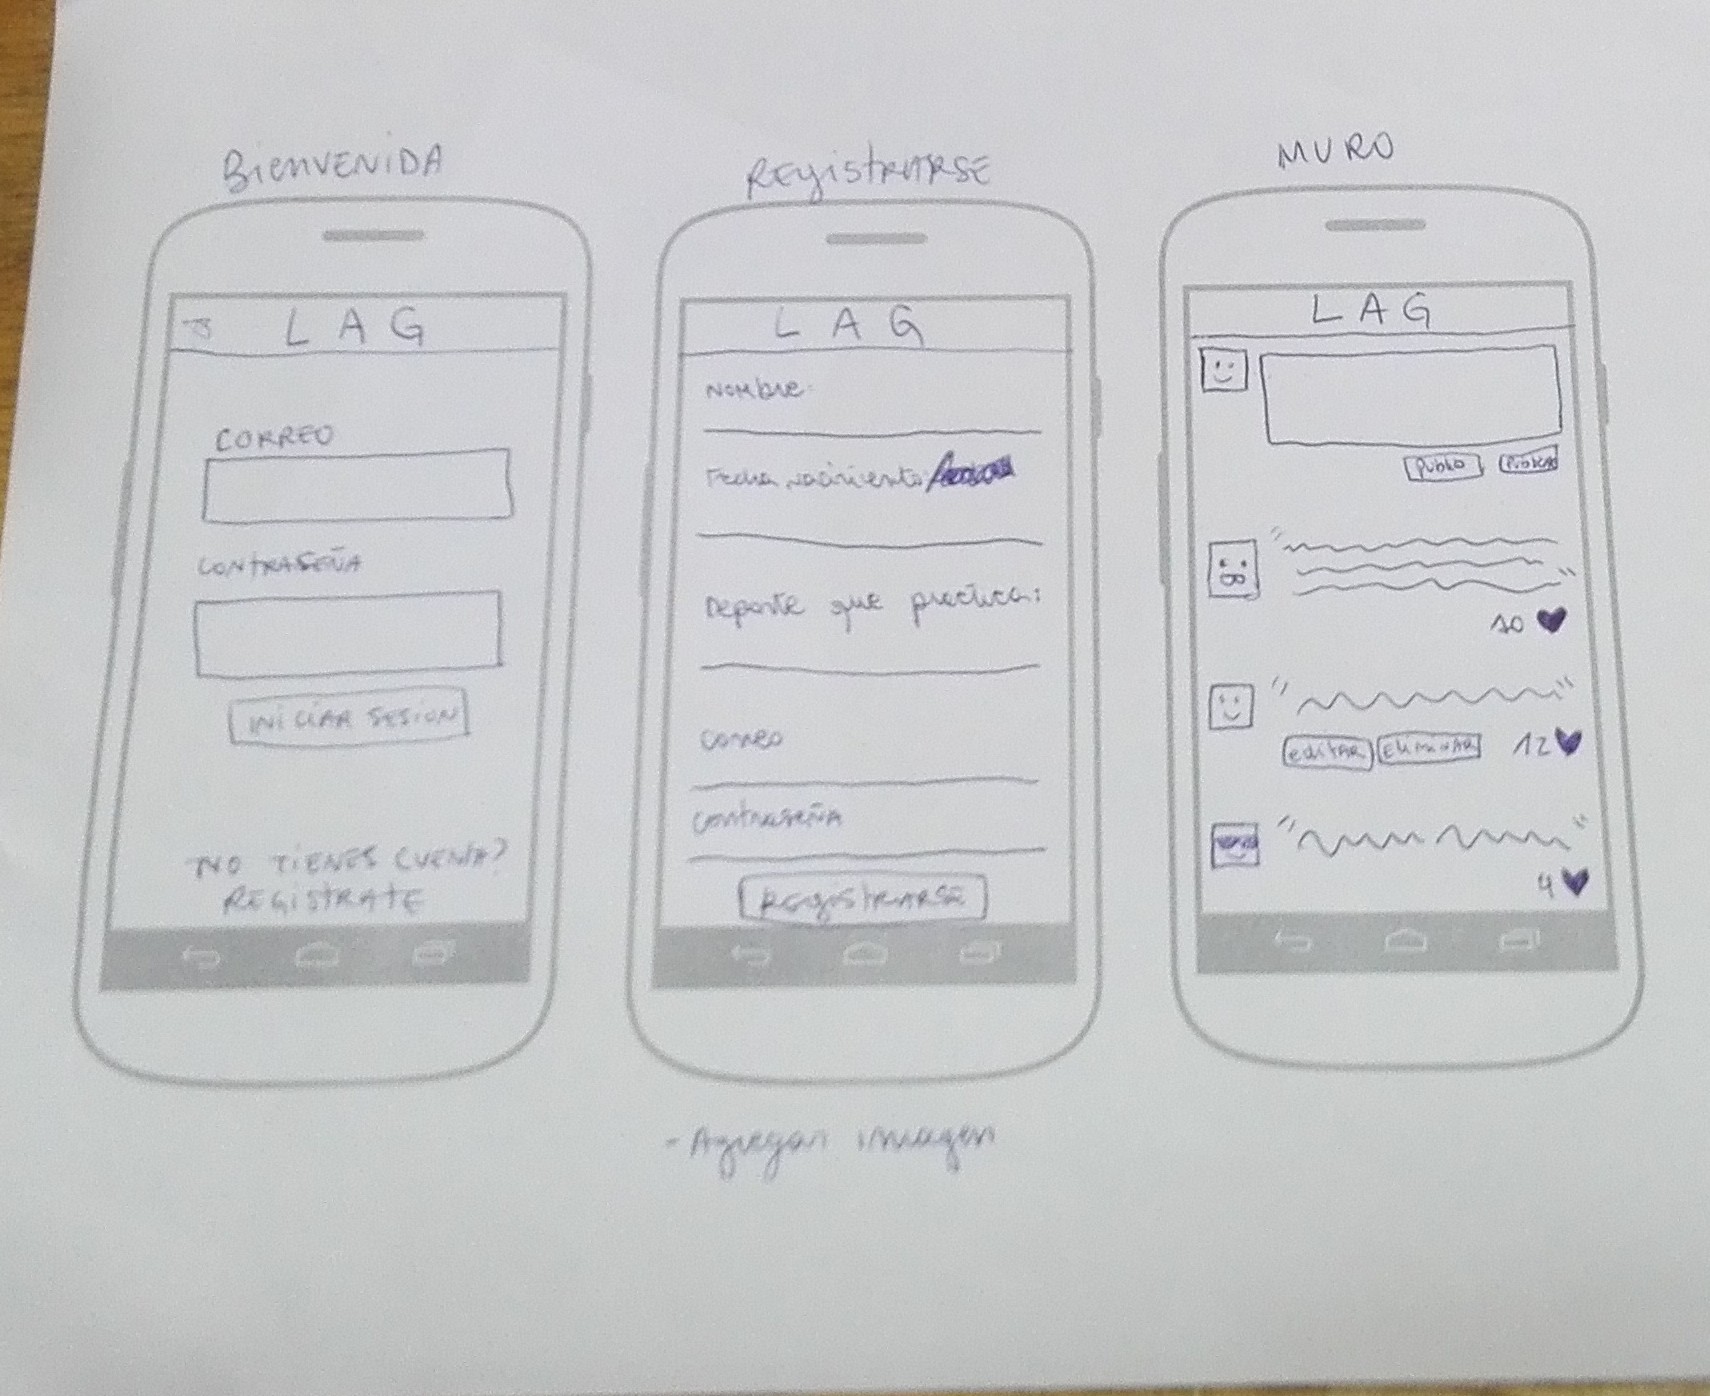 BiENVENIDA
LAG
CORREO
CONTRASEÑA
INICIAR SESION
NO TIENES CUENTA?
REGISTRATE
REGistRARSE
LAG
NOMbRE:
Fecha nacimiento:
Deporte que practica:
CORREO
CONTRASEÑA
REGISTRARSE
- Agregar imagen
MURO
LAG
publico
10
editAR ElimiNAR 12
4